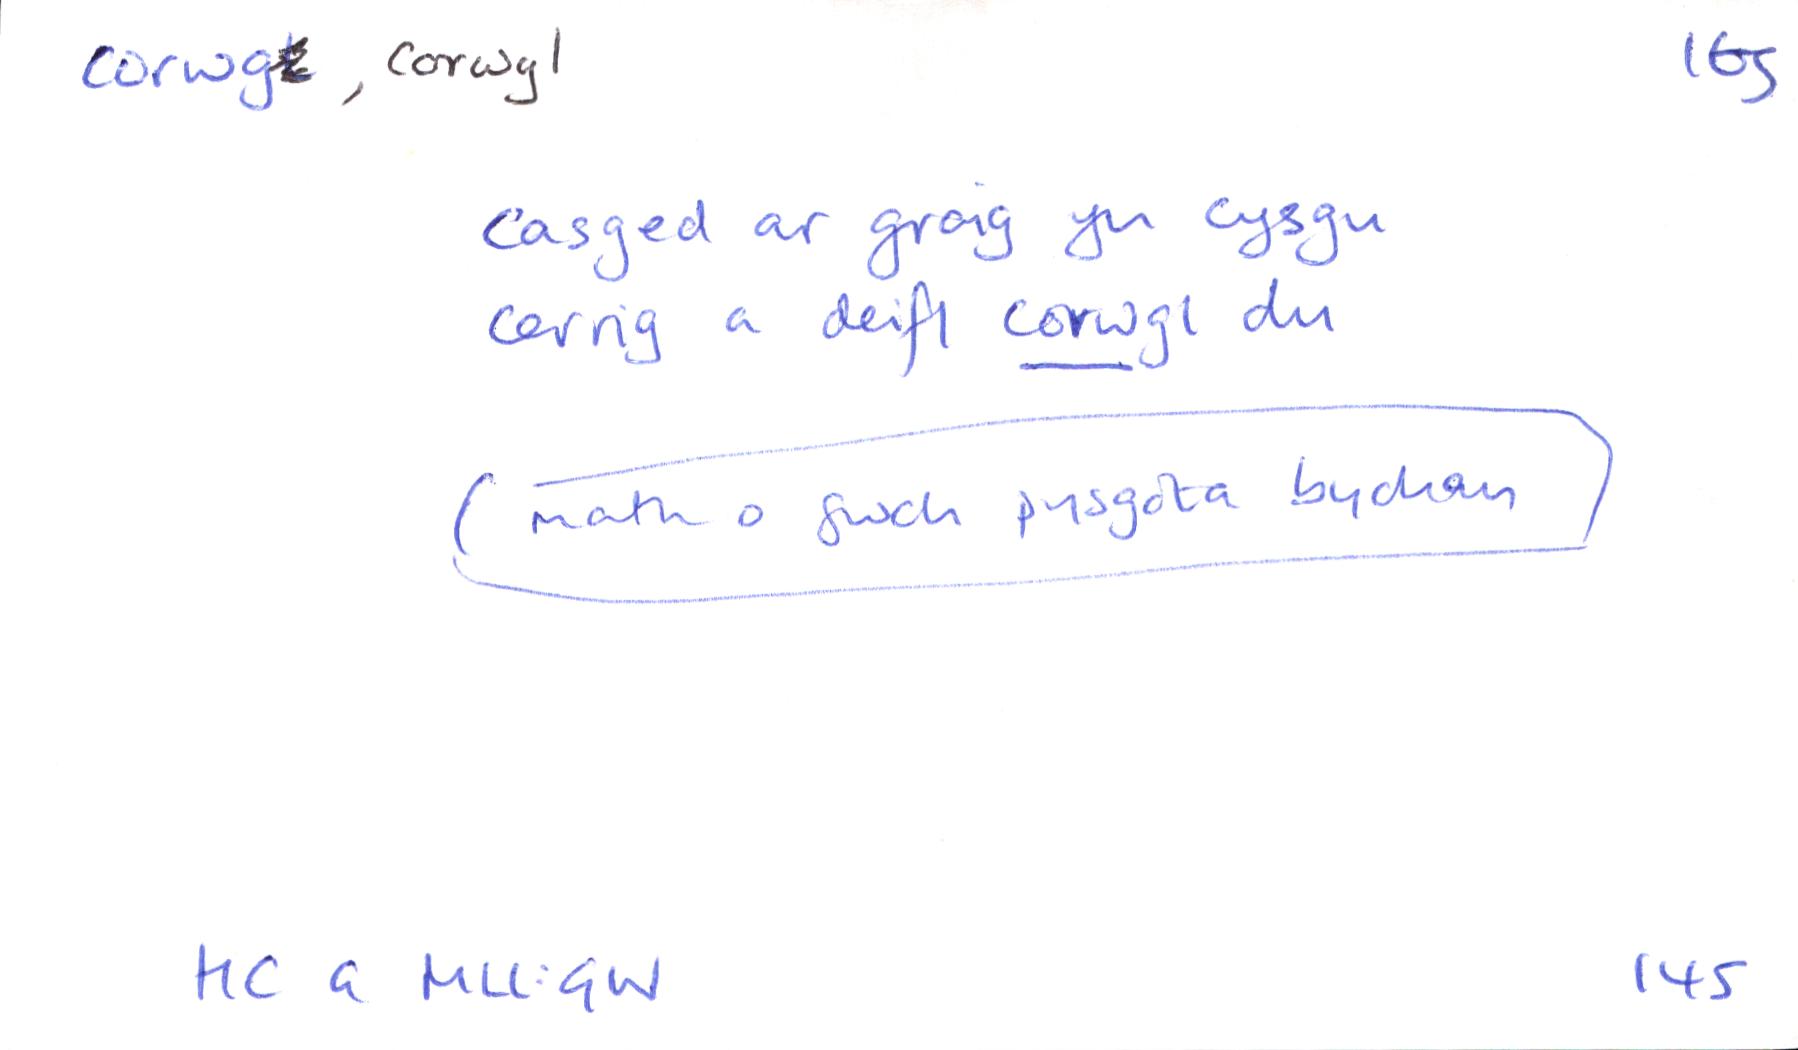 corwg, corwgl 165
casged ar graig yn cysgu
cerrig a deifl corwgl du
(math o gwch pysgota bychan)
HC a MLl:GW 145